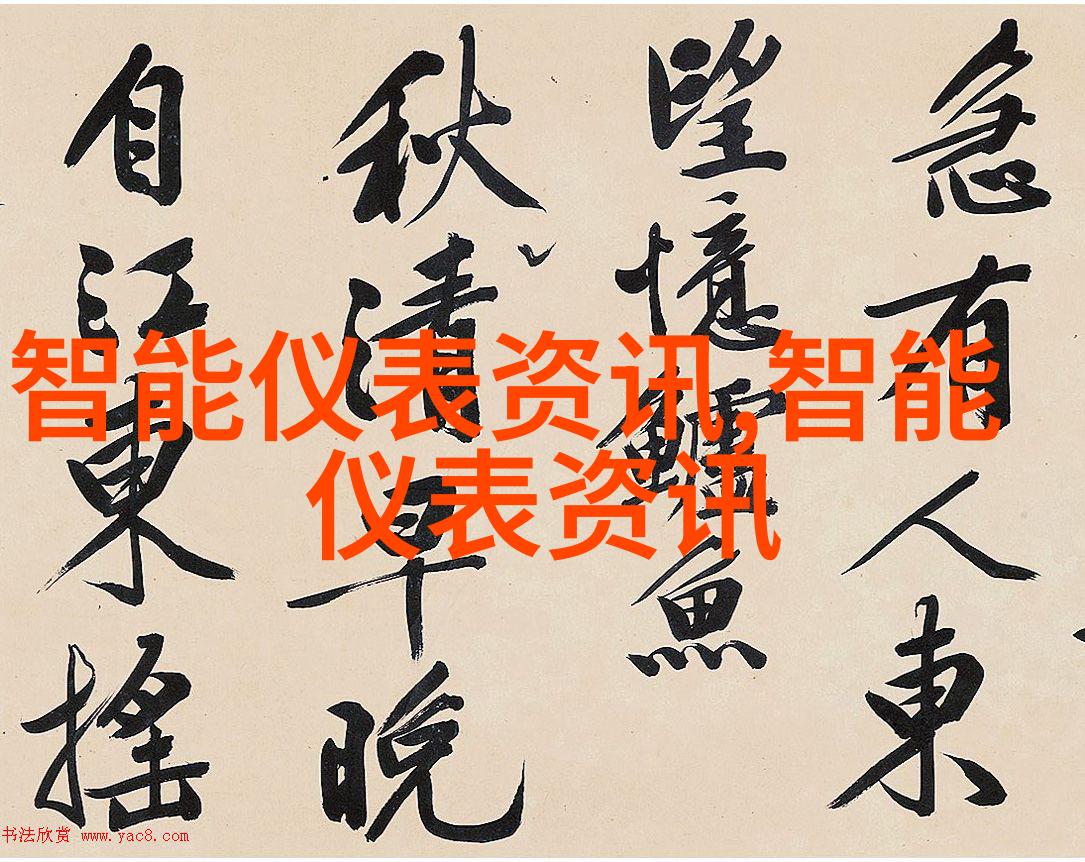 急有人東
望憶鱸魚
秋清早晚
自江東搖
智能仪表资讯,智能
仪表资讯
书法欣赏 www.yac8.com